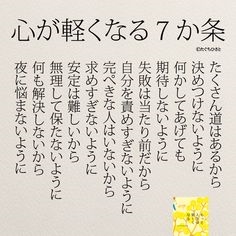 心が軽くなる7か条
©たぐちひさと
たくさん道はあるから
決めつけないように
何かしてあげても
期待しないように
失敗は当たり前だから
自分を責めすぎないように
完ぺきな人はいないから
求めすぎないように
安定は難しいから
無理して保たないように
何も解決しないから
夜に悩まないように